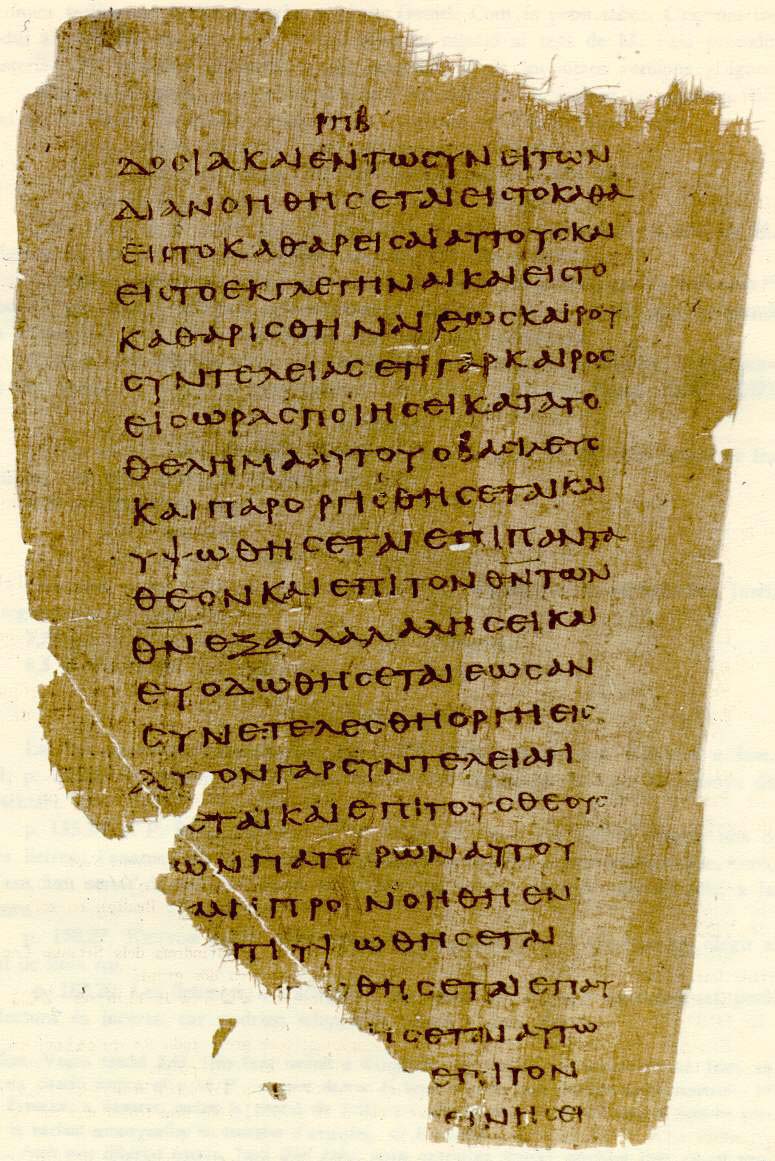 ΡΠΒ
ΔΟCΙΑΚΑΙΕΝΤΩCΥΝΕΙΤΩΝ
ΔΙΑΝΟΗΘΗCΕΤΑΙΕΙCΤΟΚΑΘΑ
ΕΙCΤΟΚΑΘΑΡΕΙCΑΙΑΥΤΟΥCΚΑΙ
ΕΙCΤΟΕΚΓΛΕΓΗΝΑΙΚΑΙΕΙCΤΟ
ΚΑΘΑΡΙCΘΗΝΑΙΕΩCΚΑΙΡΟΥ
CΥΝΤΕΛΕΙΑCΕΤΙΓΑΡΚΑΙΡΟC
ΕΙCΩΡΑCΠΟΙΗCΕΙΚΑΤΑΤΟ
ΘΕΛΗΜΑΑΥΤΟΥΟΒΑCΙΛΕΥC
ΚΑΙΠΑΡΟΡΓΙCΘΗCΕΤΑΙΚΑΙ
ΥΨΩΘΗCΕΤΑΙΕΠΙΠΑΝΤΑ
ΘΕΟΝΚΑΙΕΠΙΤΟΝΘ̅Ν̅ΤΩΝ
Θ̅Ν̅ΕΞΑΛΛΑΛΑΛΗCΕΙΚΑΙ
ΕΥΟΔΩΘΗCΕΤΑΙΕΩCΑΝ
CΥΝΕΤΕΛΕCΘΗΟΡΓΗΕΙC
ΑΥΤΟΝΓΑΡCΥΝΤΕΛΕΙΑΓΙ
ΕΤΑΙΚΑΙΕΠΙΤΟΥCΘΕΟΥC
ΩΝΠΑΤΕΡΩΝΑΥΤΟΥ
ΜΗΠΡΟΝΟΗΘΗΕΝ
ΠΙΥΨΩΘΗCΕΤΑΙ
ΘΗCΕΤΑΙΕΠΑΥ
CΕΤΑΙΑΥΤΩ
ΕΠΙΤΟΝ
ΕΙΝΗCΕΙ